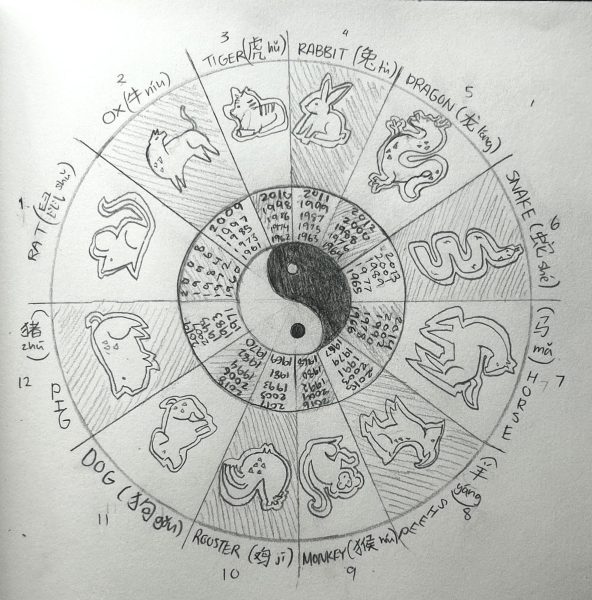 1
RAT (鼠 shǔ)
2008
1996
1984
1972
1960
2
OX (牛 niú)
2009
1997
1985
1973
1961
3
TIGER (虎 hǔ)
2010
1998
1974
1962
4
RABBIT (兔 tù)
2011
1999
1987
1975
1963
5
DRAGON (龙 lóng)
2012
2000
1988
1976
1964
6
SNAKE (蛇 shé)
2013
2001
1989
1977
1965
7
HORSE (马 mǎ)
2014
2002
1990
8
SHEEP (羊 yáng)
2015
2003
1991
1979
1967
9
MONKEY (猴 hóu)
2016
2004
1992
1980
1968
10
ROOSTER (鸡 jī)
2017
2005
1993
1981
1969
11
DOG (狗 gǒu)
2018
2006
1994
1982
1970
12
PIG (猪 zhū)
2019
1995
1983
1971